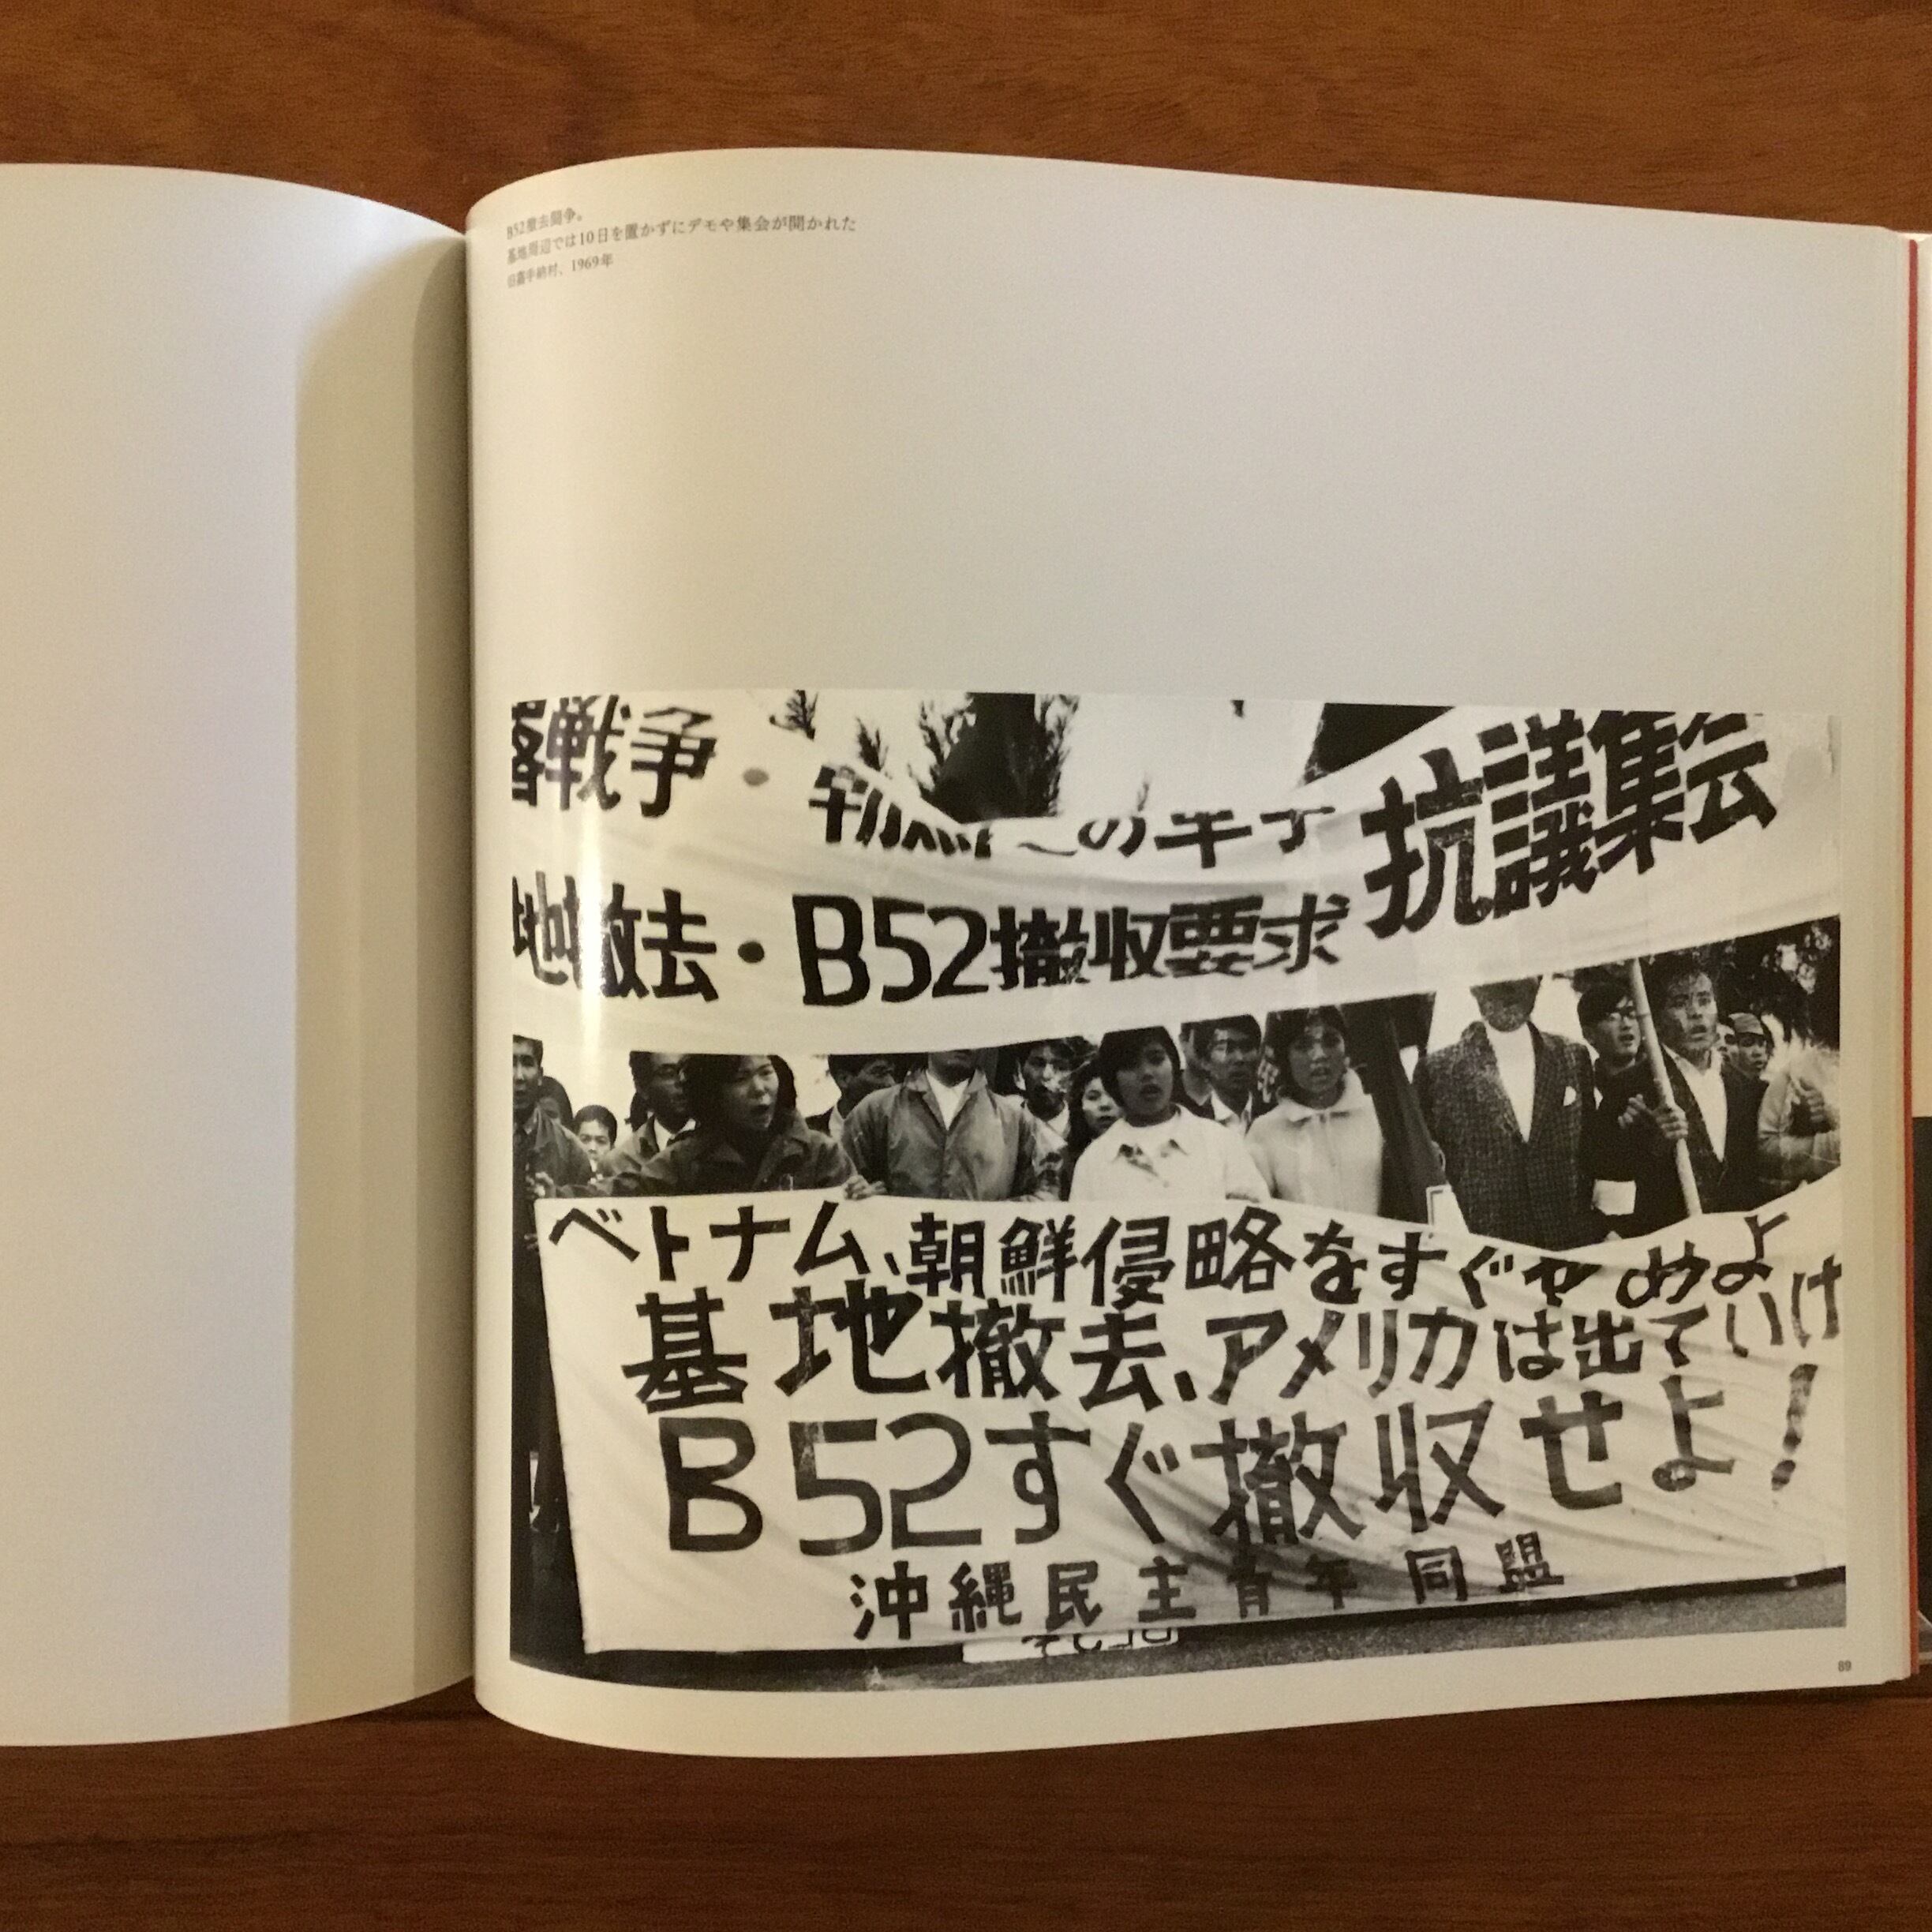 B52撤去闘争。
基地周辺では10日を置かずにデモや集会が開かれた
旧嘉手納村、1969年
戦争・
抗議集会
地撤去・B52撤収要求
ベトナム、朝鮮侵略をすぐやめよ
基地撤去、アメリカは出ていけ
B52すぐ撤収せよ!
沖縄民主青年同盟
89